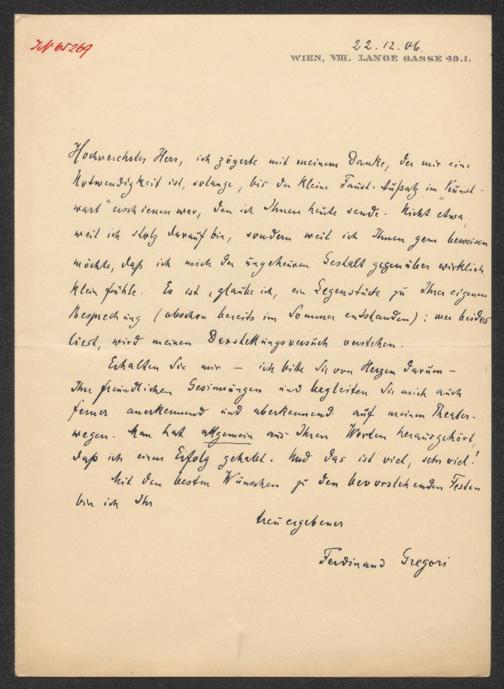 IN 65269
22.12.06.
WIEN, VIII. LANGE GASSE 49.I.
Hochverehrter Herr, ich zögerte mit meinem Danke, der mir eine
Notwendigkeit ist, solange, bis der kleine Faust-Aufsatz im "Kunst-
wart" erschienen war, den ich Ihnen heute sende. Nicht etwa,
weil ich stolz darauf bin, sondern weil ich Ihnen gern beweisen
möchte, daß ich mich der ungeheuren Gestalt gegenüber wirklich
klein fühle. Es ist, glaube ich, ein Gegenstück zu Ihrer eigenen
Besprechung (obschon bereits im Sommer entstanden): wer beides
liest, wird meinen Darstellungsversuch verstehen.
Erhalten Sie mir – ich bitte Sie von Herzen darum –
Ihre freundlichen Gesinnungen und begleiten Sie mich auch
ferner anerkennend und aberkennend auf meinen Theater-
wegen. Man hat allgemein aus Ihren Worten herausgehört,
daß ich einen Erfolg gehabt. Und das ist viel, sehr viel!
Mit den besten Wünschen zu den bevorstehenden Festen
bin ich Ihr
treu ergebener
Ferdinand Gregori